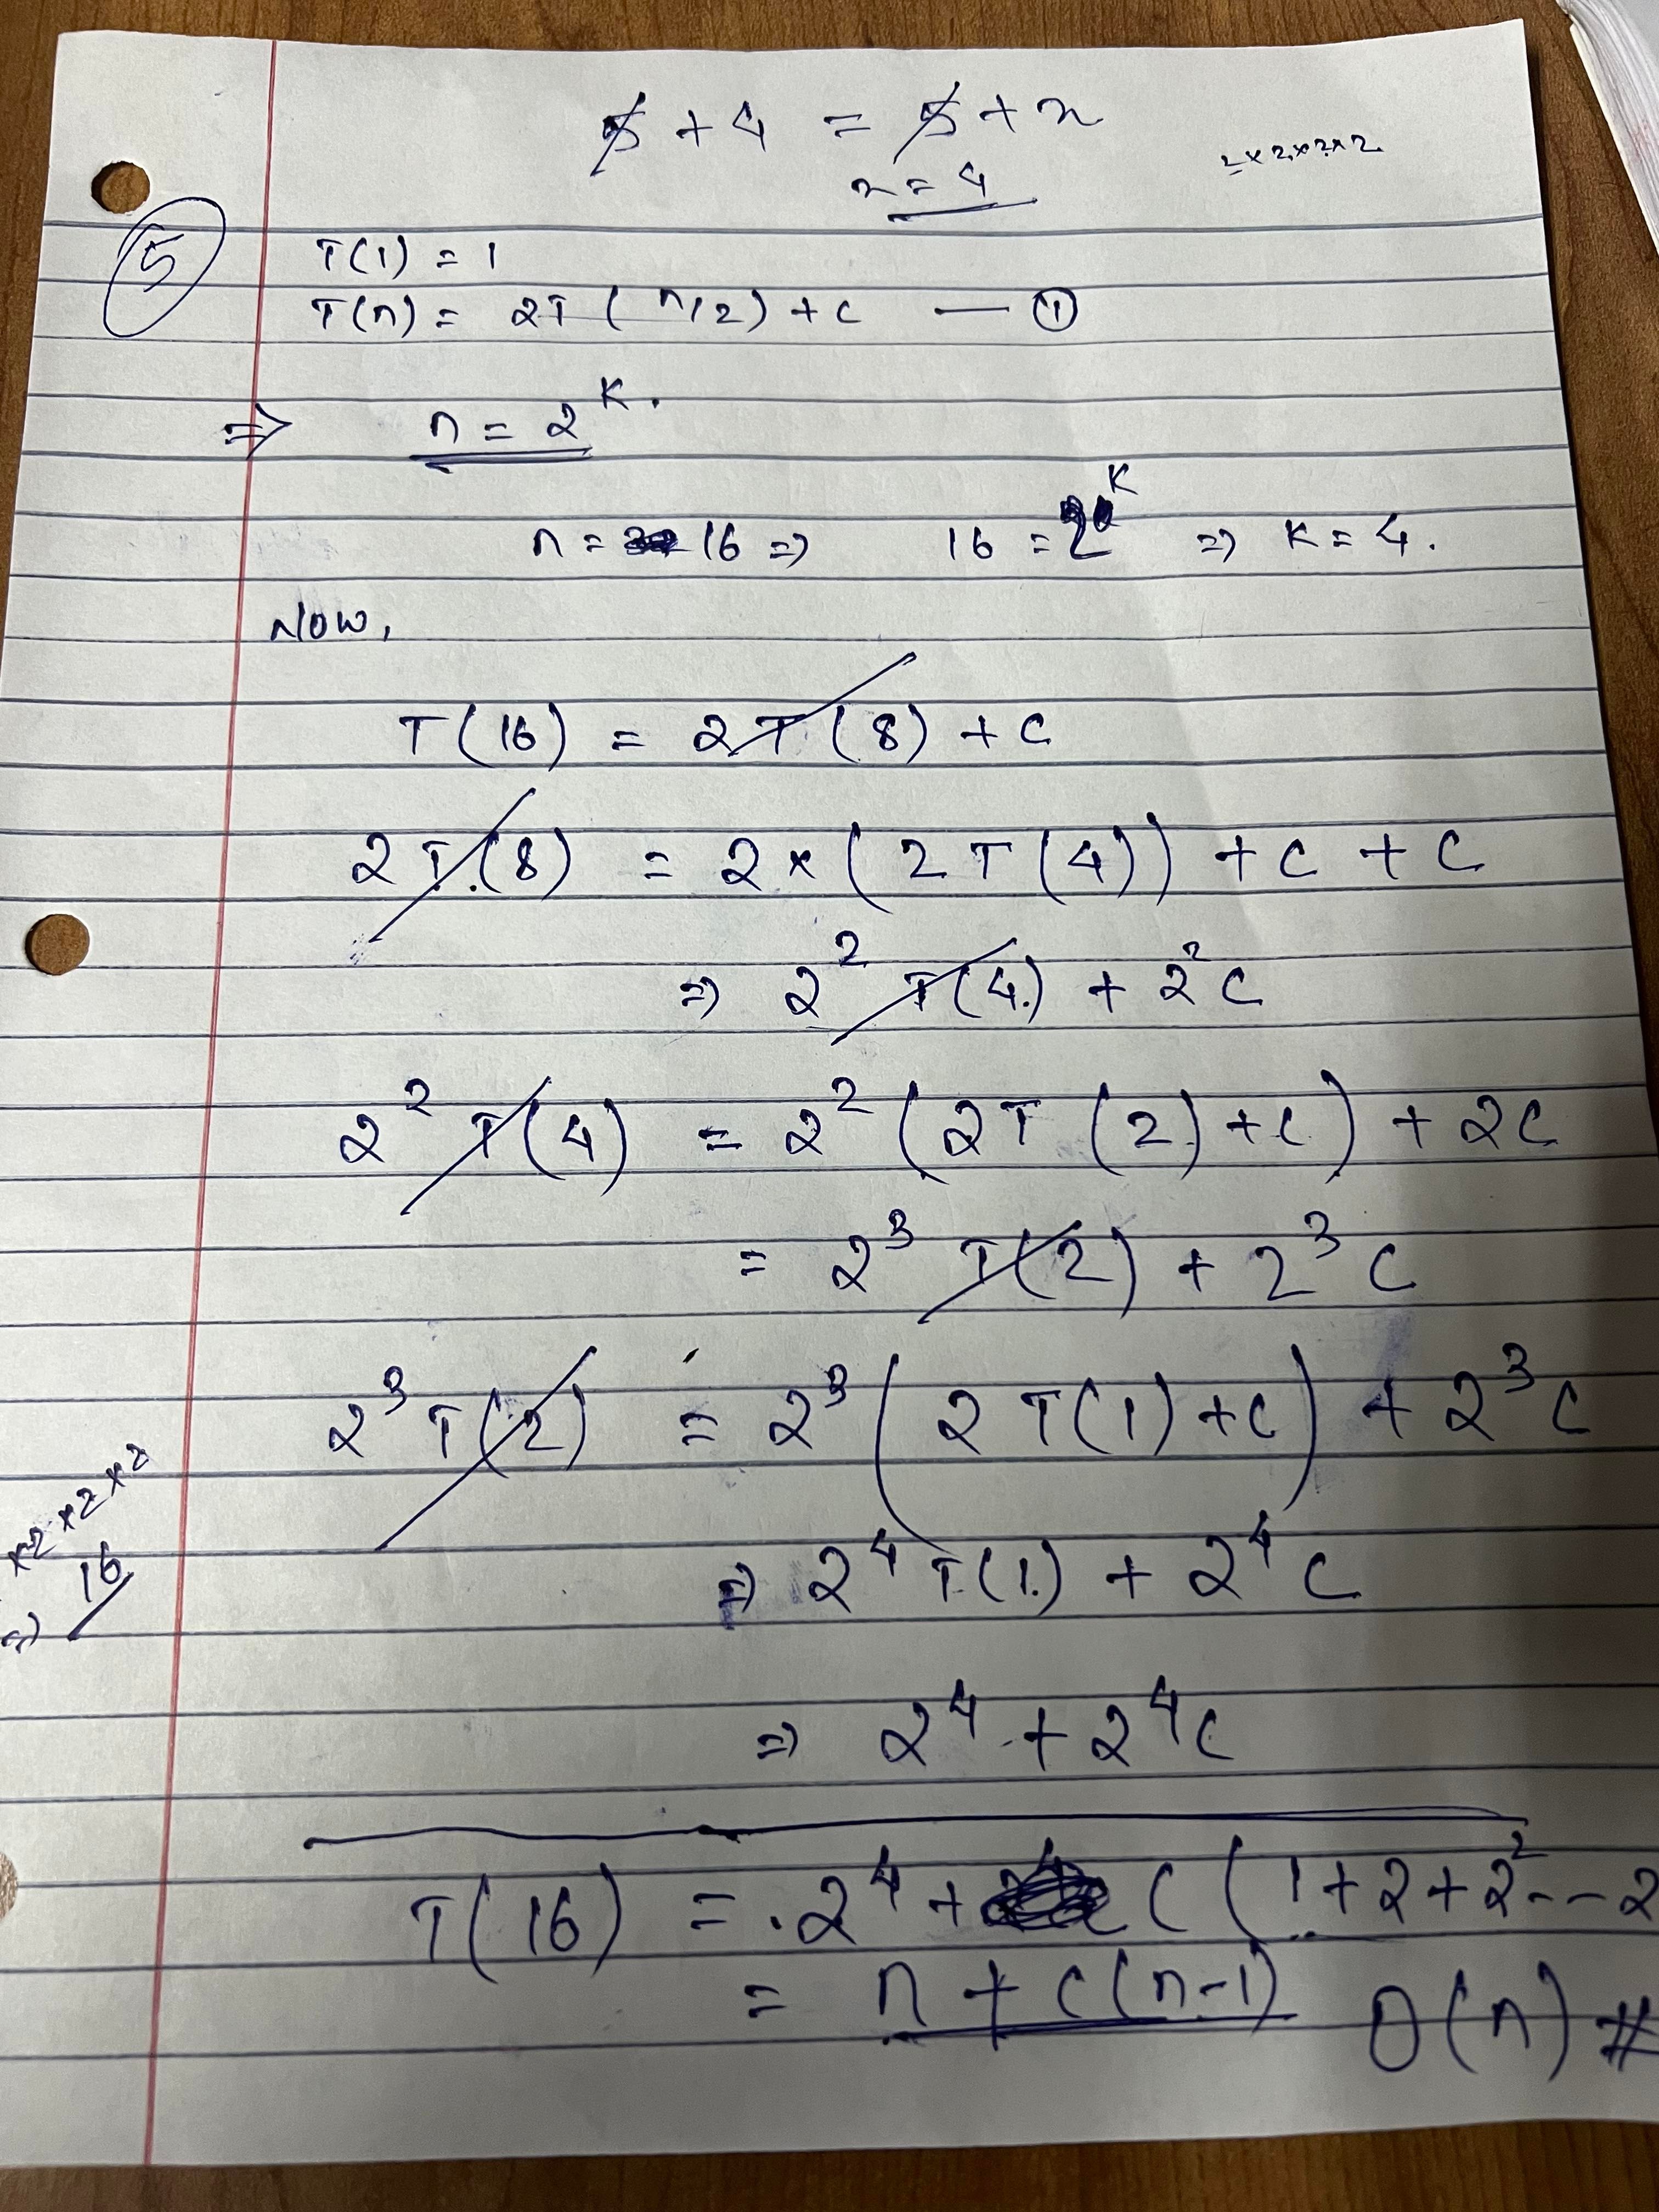 5 + 4 = 5 + x
x = 4
2 x 2 x 2 x 2
5
T(1) = 1
T(n) = 2T ( n/2 ) + c — ①
⇒ n = 2^K.
n = 16 ⇒ 16 = 2^K ⇒ K = 4.
Now,
T(16) = 2T(8) + C
2T(8) = 2 x (2T(4)) + C + C
⇒ 2^2 T(4) + 2^2 C
2^2 T(4) = 2^2 (2T(2) + C) + 2C
= 2^3 T(2) + 2^3 C
2^3 T(2) = 2^3 (2T(1) + C) + 2^3 C
x2 x 2 x 2
⇒ 16
⇒ 2^4 T(1) + 2^4 C
⇒ 2^4 + 2^4 C
T(16) = 2^4 + C (1 + 2 + 2^2 -- 2
= n + C(n-1) O(n) #